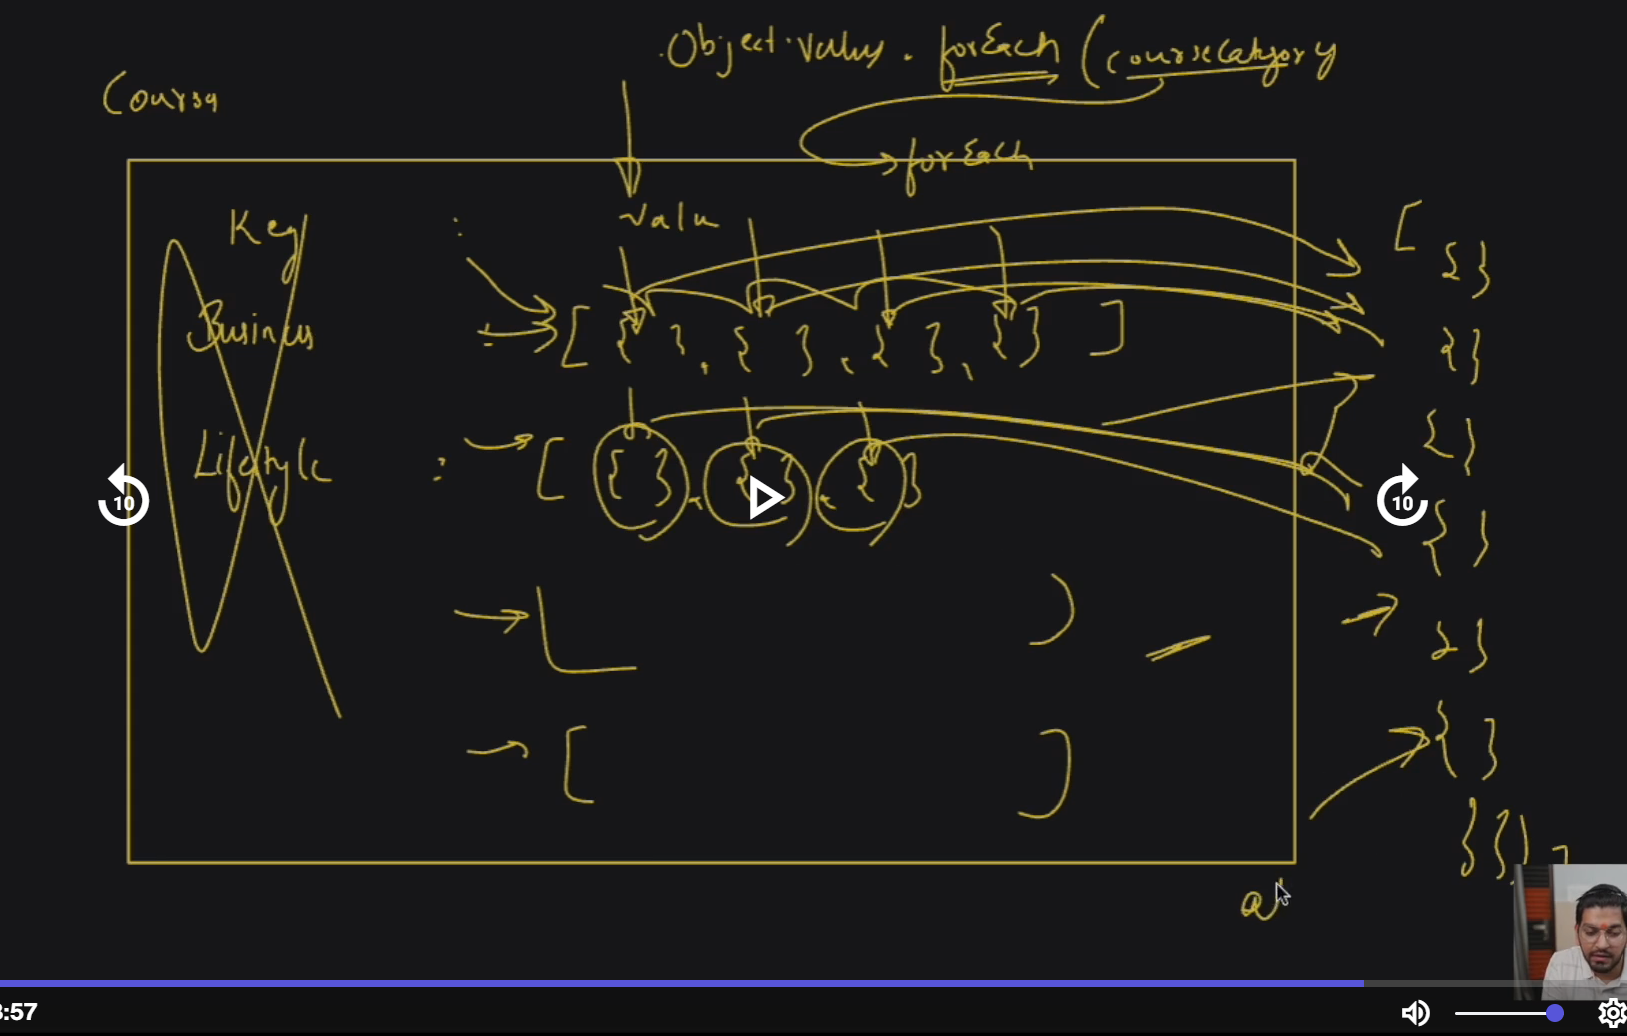 .Object.values.forEach(courseCategory
Courses
forEach
Key : Value
Business : [ { }, { }, { }, { } ]
Lifestyle : [ { }, { }, { }
[ ]
[ { }
{ }
{ }
{ }
{ }
{ }
10
10
3:57